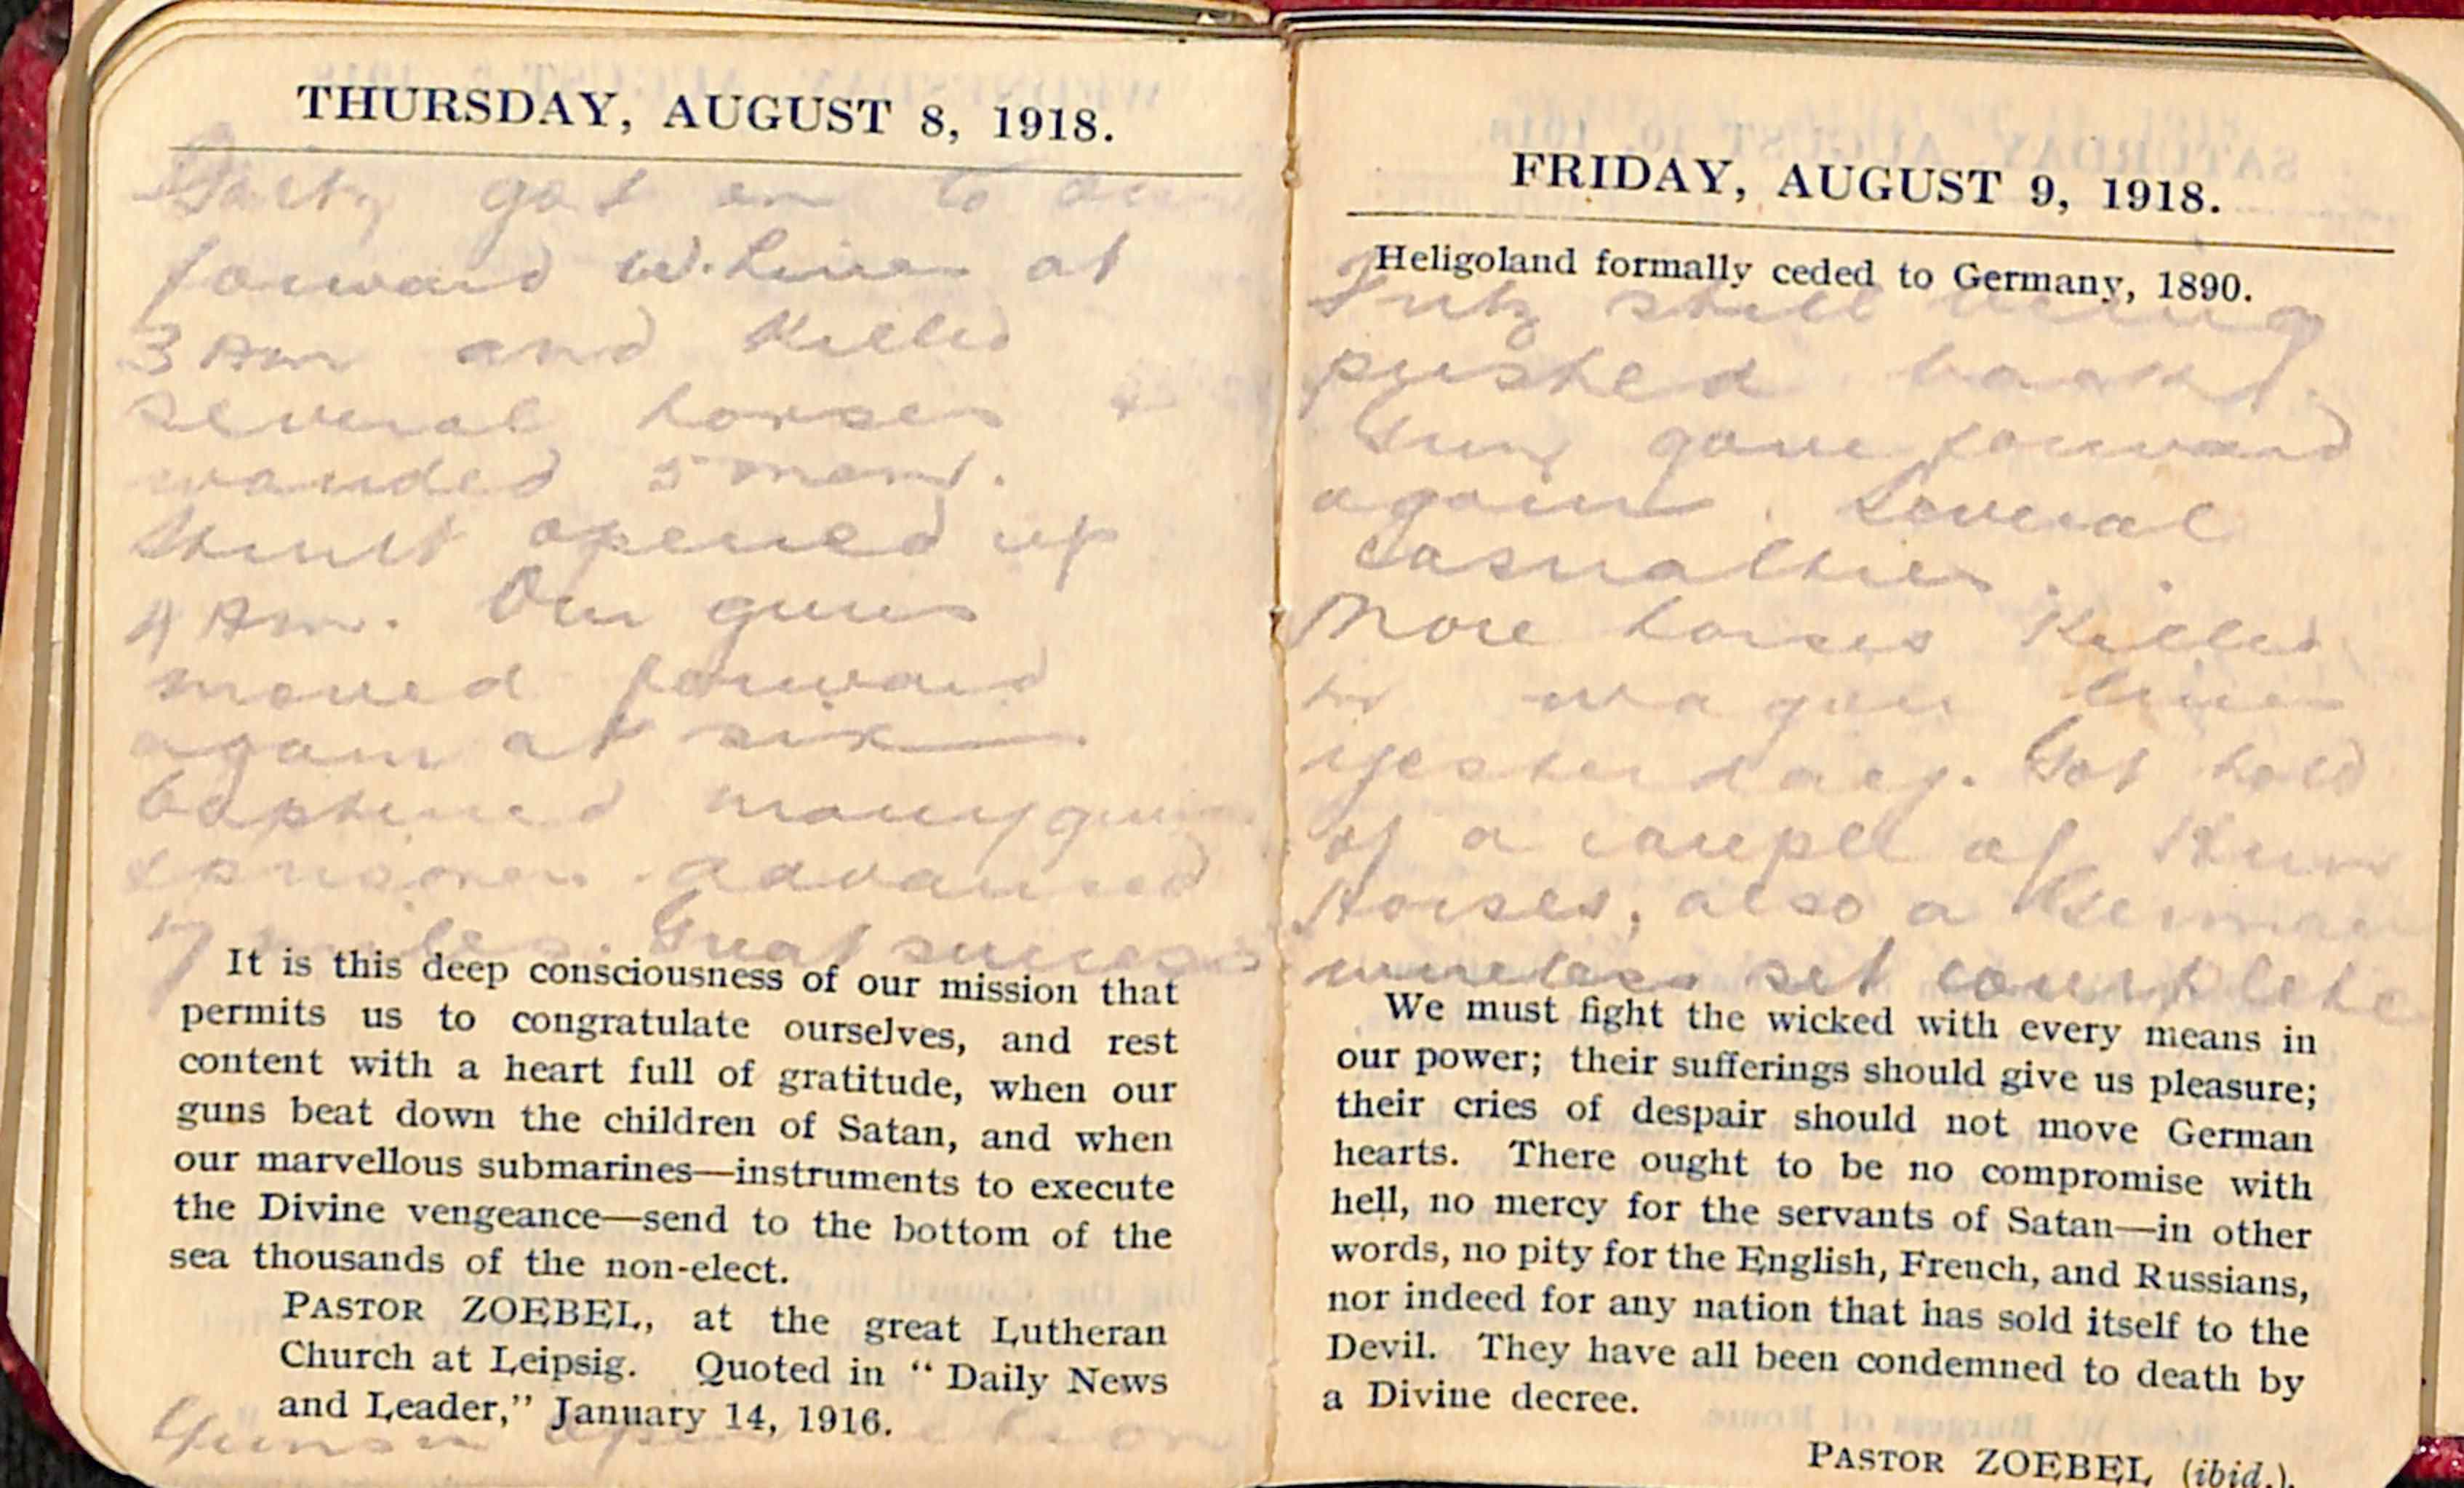 THURSDAY, AUGUST 8, 1918.
Fritz got on to our
forward W. Lines at
3 Am and killed
several horses &
wounded 5 men.
Stunt opened up
4 Am. Our guns
moved forward
again at six
Captured many guns
& prisoners. advanced
7 miles. Great success
It is this deep consciousness of our mission that
permits us to congratulate ourselves, and rest
content with a heart full of gratitude, when our
guns beat down the children of Satan, and when
our marvellous submarines—instruments to execute
the Divine vengeance—send to the bottom of the
sea thousands of the non-elect.
PASTOR ZOEBEL, at the great Lutheran
Church at Leipsig. Quoted in "Daily News
and Leader," January 14, 1916.
FRIDAY, AUGUST 9, 1918.
Heligoland formally ceded to Germany, 1890.
Fritz still being
pushed back.
Guns gone forward
again. Several
casualties.
More horses killed
in wagon lines
yesterday. Got hold
of a couple of Hun
Horses, also a German
wireless set complete
We must fight the wicked with every means in
our power; their sufferings should give us pleasure;
their cries of despair should not move German
hearts. There ought to be no compromise with
hell, no mercy for the servants of Satan—in other
words, no pity for the English, French, and Russians,
nor indeed for any nation that has sold itself to the
Devil. They have all been condemned to death by
a Divine decree.
PASTOR ZOEBEL (ibid.).